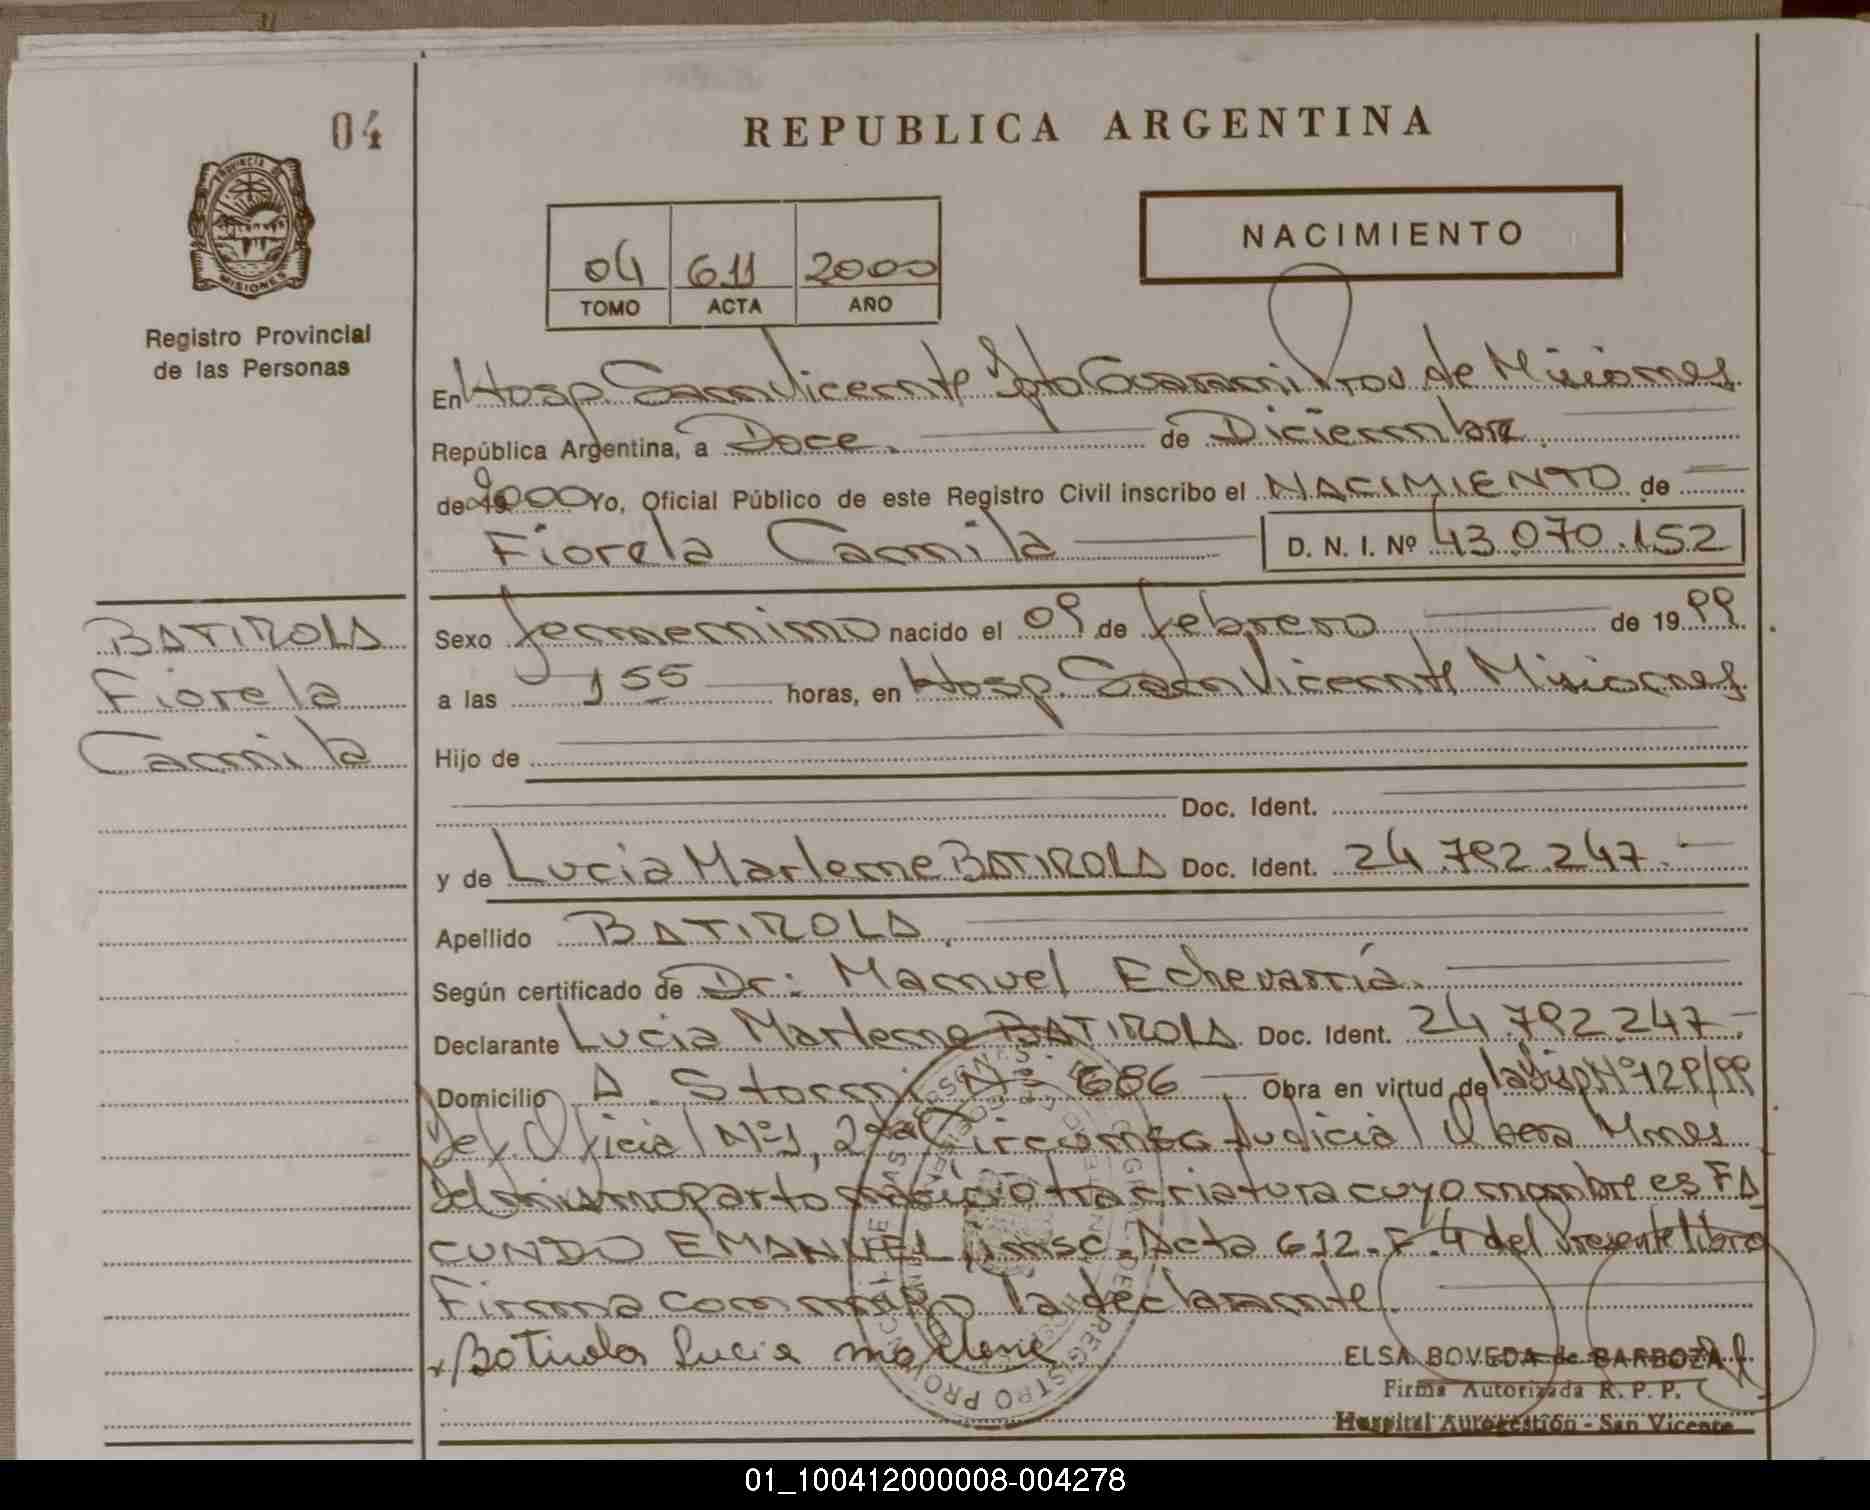 04
REPUBLICA ARGENTINA
PROVINCIA DE
MISIONES
Registro Provincial
de las Personas
04 611 2000
TOMO ACTA AÑO
NACIMIENTO
En Hosp San Vicente Dpto Guarani Prov de Misiones
República Argentina, a Doce de Diciembre
de 2000 Yo, Oficial Público de este Registro Civil inscribo el NACIMIENTO de
Fiorela Camila D. N. I. Nº 43.070.152
BATIROLA
Fiorela
Camila
Sexo femenino nacido el 09 de febrero de 1999
a las 155 horas, en Hosp. San Vicente Misiones
Hijo de
Doc. Ident.
y de Lucia Marlene BATIROLA Doc. Ident. 24.792.247.
Apellido BATIROLA
Según certificado de Dr: Manuel Echevarría
Declarante Lucia Marlene BATIROLA Doc. Ident. 24.792.247
Domicilio A. Storni Nº 686 Obra en virtud de la Disp Nº 129/99
Def. Oficial Nº1, 2da Circunsc Judicial Obera Mnes
Del mismo parto nacio otra criatura cuyo nombre es FA
CUNDO EMANUEL, insc. Acta 612-F.4 del Presente libro
Firma conmigo la declarante
x Batirola Lucia Marlene
ELSA BOVEDA de BARBOZA
Firma Autorizada R. P. P.
Hospital Autogestión - San Vicente
01_100412000008-004278